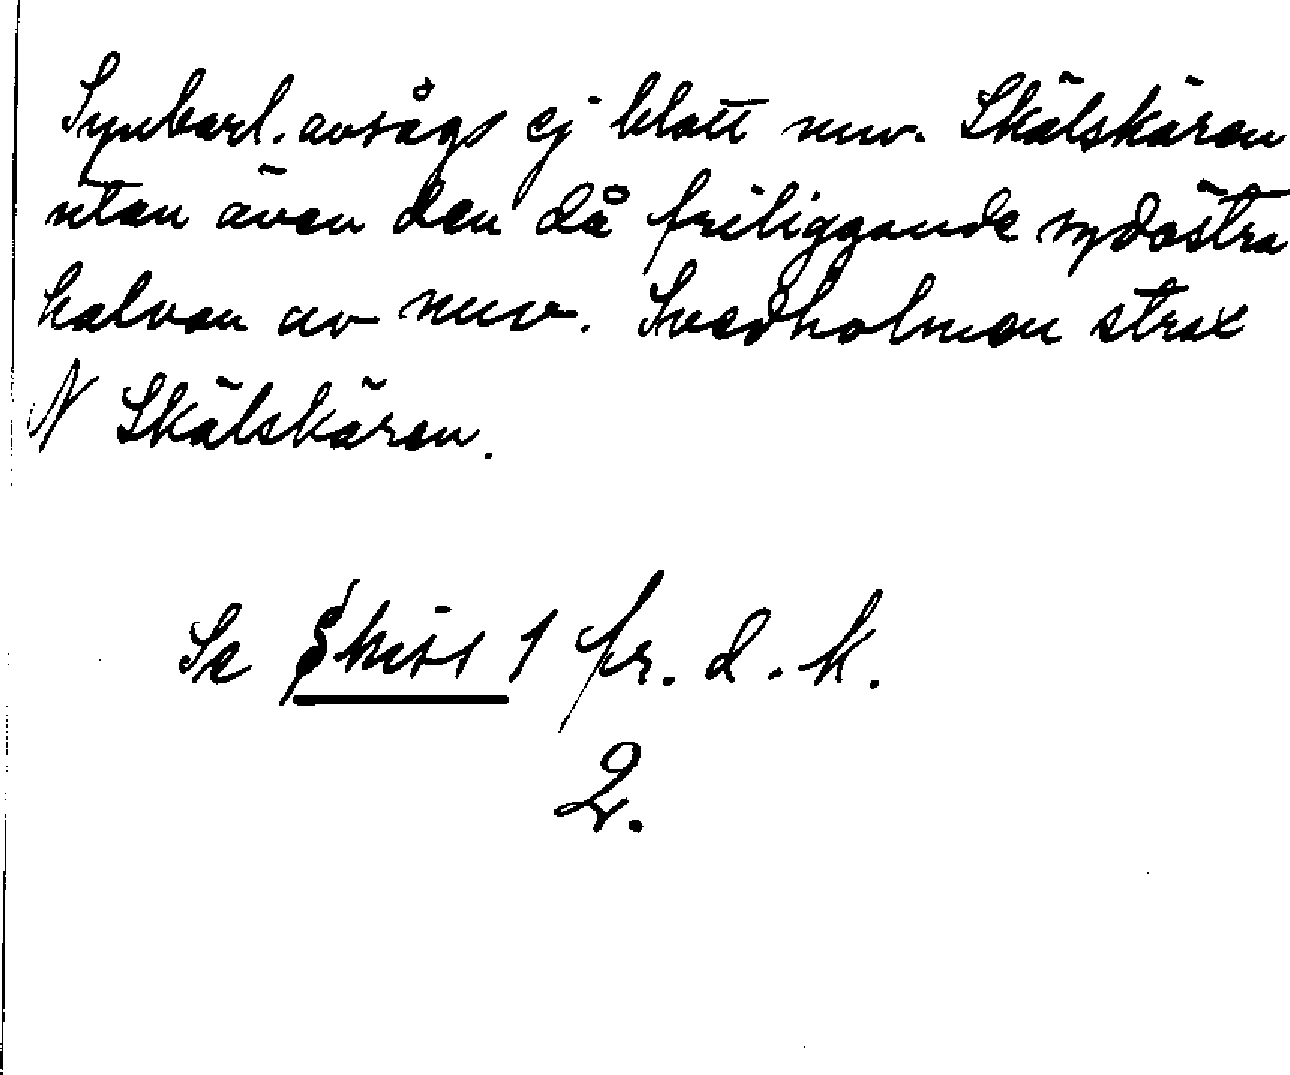 Synbarl. avsågs ej blott nuv. Skälskären
utan även den då friliggande sydöstra
halvan av nuv. Svedholmen strax
N Skälskären.
Se Skiss 1 fr. d. k.
2.